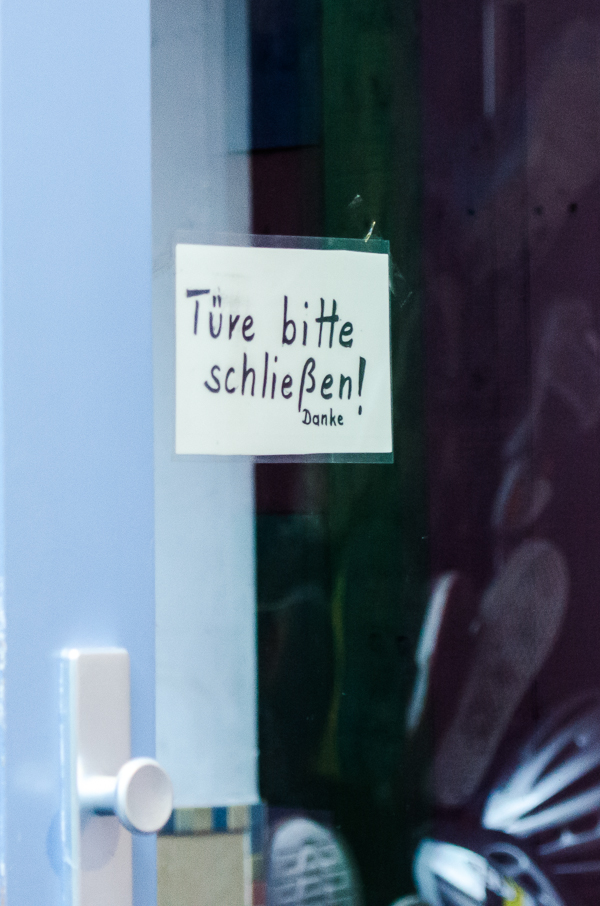 Türe bitte
schließen!
Danke